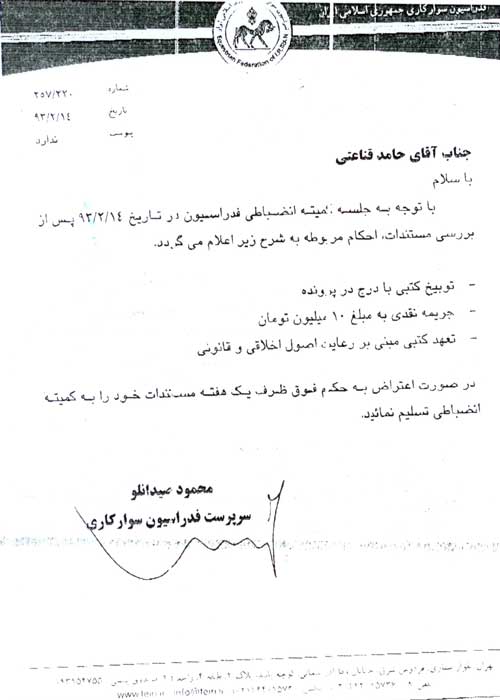 فدراسیون سوارکاری جمهوری اسلامی ایران
Equestrian Federation of I.R.IRAN
شماره ۲۵۷/۲۲۰
تاریخ ۹۳/۲/۱۴
پیوست ندارد
جناب آقای حامد قناعتی
با سلام
با توجه به جلسه کمیته انضباطی فدراسیون در تاریخ ۹۳/۲/۱۴ پس از
بررسی مستندات، احکام مربوطه به شرح زیر اعلام می گردد.
- توبیخ کتبی با درج در پرونده
- جریمه نقدی به مبلغ ۱۰ میلیون تومان
- تعهد کتبی مبنی بر رعایت اصول اخلاقی و قانونی
در صورت اعتراض به حکم فوق ظرف یک هفته مستندات خود را به کمیته
انضباطی تسلیم نمائید.
محمود صیدانلو
سرپرست فدراسیون سوارکاری
تهران